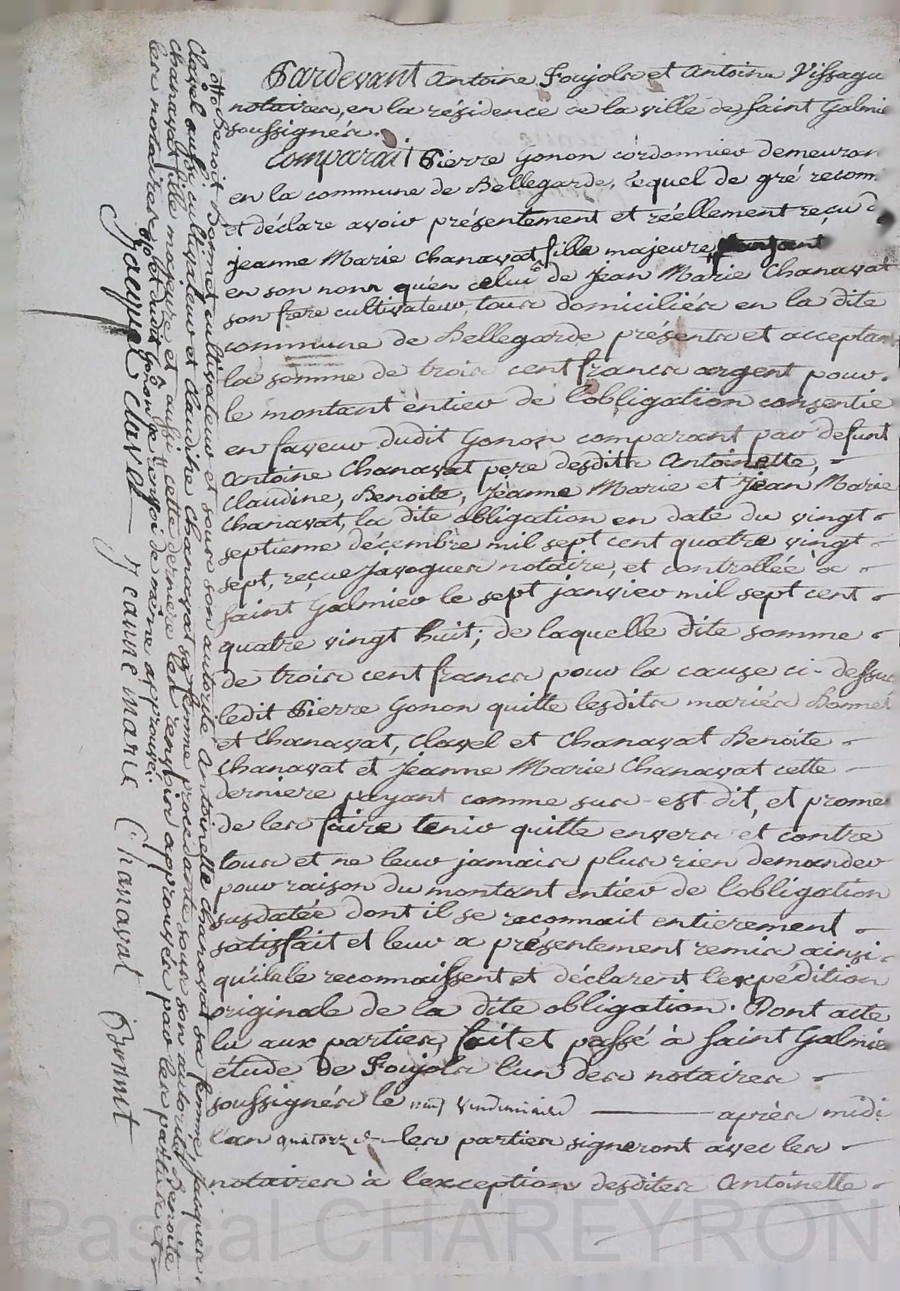 Pardevant Antoine Foujols et Antoine Vissagu
notaires, en la résidence de la ville de Saint Galmie
soussignés.
Comparait Pierre Gonon cordonnier demeuran
en la commune de Bellegarde, lequel de gré reconn
et déclare avoir présentement et réellement reçu d
jeanne Marie Chanavat, fille majeure
en son nom qu'en celui de Jean Marie Chanavat
son frere cultivateur, tous domiciliés en la dite
commune de Bellegarde présents et acceptan
la somme de trois cent francs argent pour
le montant entier de l'obligation consentie
en faveur dudit Gonon comparant par défunt
Antoine Chanavat pere desdits Antoinette,
Claudine, Benoite, Jeanne Marie et Jean Marie
Chanavat, la dite obligation en date du vingt
septieme décembre mil sept cent quatre vingt
sept, reçue Javogues notaire, et controllée à
saint Galmier le sept janvier mil sept cent
quatre vingt huit; de laquelle dite somme
de trois cent francs pour la cause ci-dessus
ledit Pierre Gonon quitte lesdits mariés Bonnet
et Chanavat, Clavel et Chanavat Benoite
Chanavat et Jeanne Marie Chanavat cette
derniere payant comme sus-est dit, et prome
de les faire tenir quitte envers et contre
tous et ne leur jamais plus rien demander
pour raison du montant entier de l'obligation
susdatée dont il se reconnait entierement
satisfait et leur a présentement remis ainsi
qu'ils le reconnaissent et déclarent l'expédition
originale de la dite obligation. Dont acte
lu aux parties, fait et passé à Saint Galmie
étude de Foujols l'un des notaires
soussignés le neuf vendemiaire après midi
l'an quatorze les parties signeront avec les
notaires à l'exception desdites Antoinette
Benoit Bonnet cultivateur et sous son autorité Antoinette Chanavat sa femme, jacques
Clavel aussi cultivateur et Claudine Chanavat sa femme procedante sous son autorité, Benoite
Chanavat fille majeure et aussi cette derniere les renvoi approuvés par les parties et
les notaires
et dudit Gonon renvoi de même approuvé.
Jacque clavel jeanne marie Chanavat Bonnet
Pascal CHAREYRON